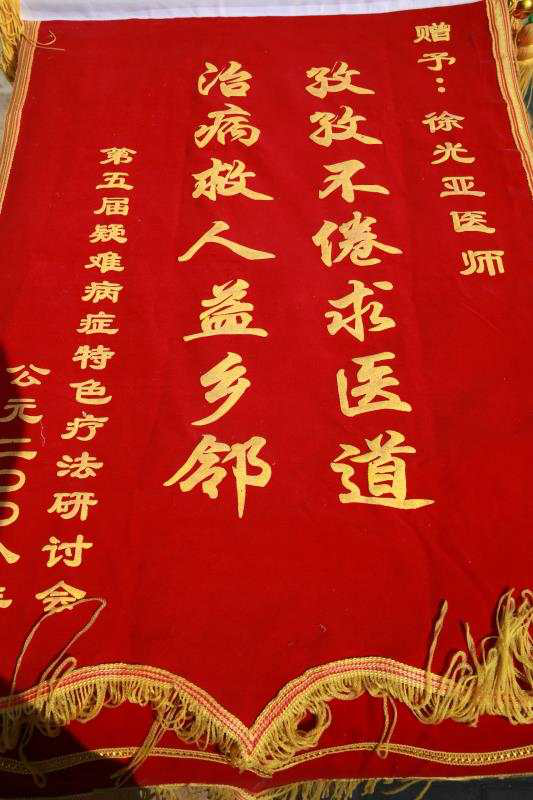 赠予：徐光亚医师
孜孜不倦求医道
治病救人益乡邻
第五届疑难病症特色疗法研讨会
公元二〇〇八年